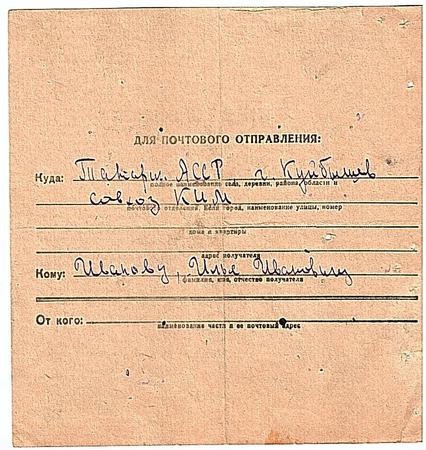 ДЛЯ ПОЧТОВОГО ОТПРАВЛЕНИЯ:
Куда: Татарск. АССР, г. Куйбышев
полное наименование села, деревни, района, области и
совхоз КИМ
почтового отделения, или город, наименование улицы, номер
дома и квартиры
адрес получателя
Кому: Иванову, Илье Ивановичу
фамилия, имя, отчество получателя
От кого:
наименование части и ее почтовый адрес